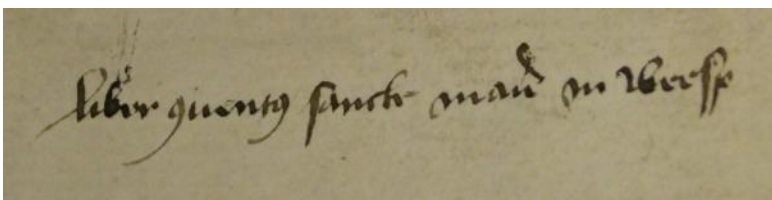 Liber ꝯuentꝯ sancte marie in Weesp